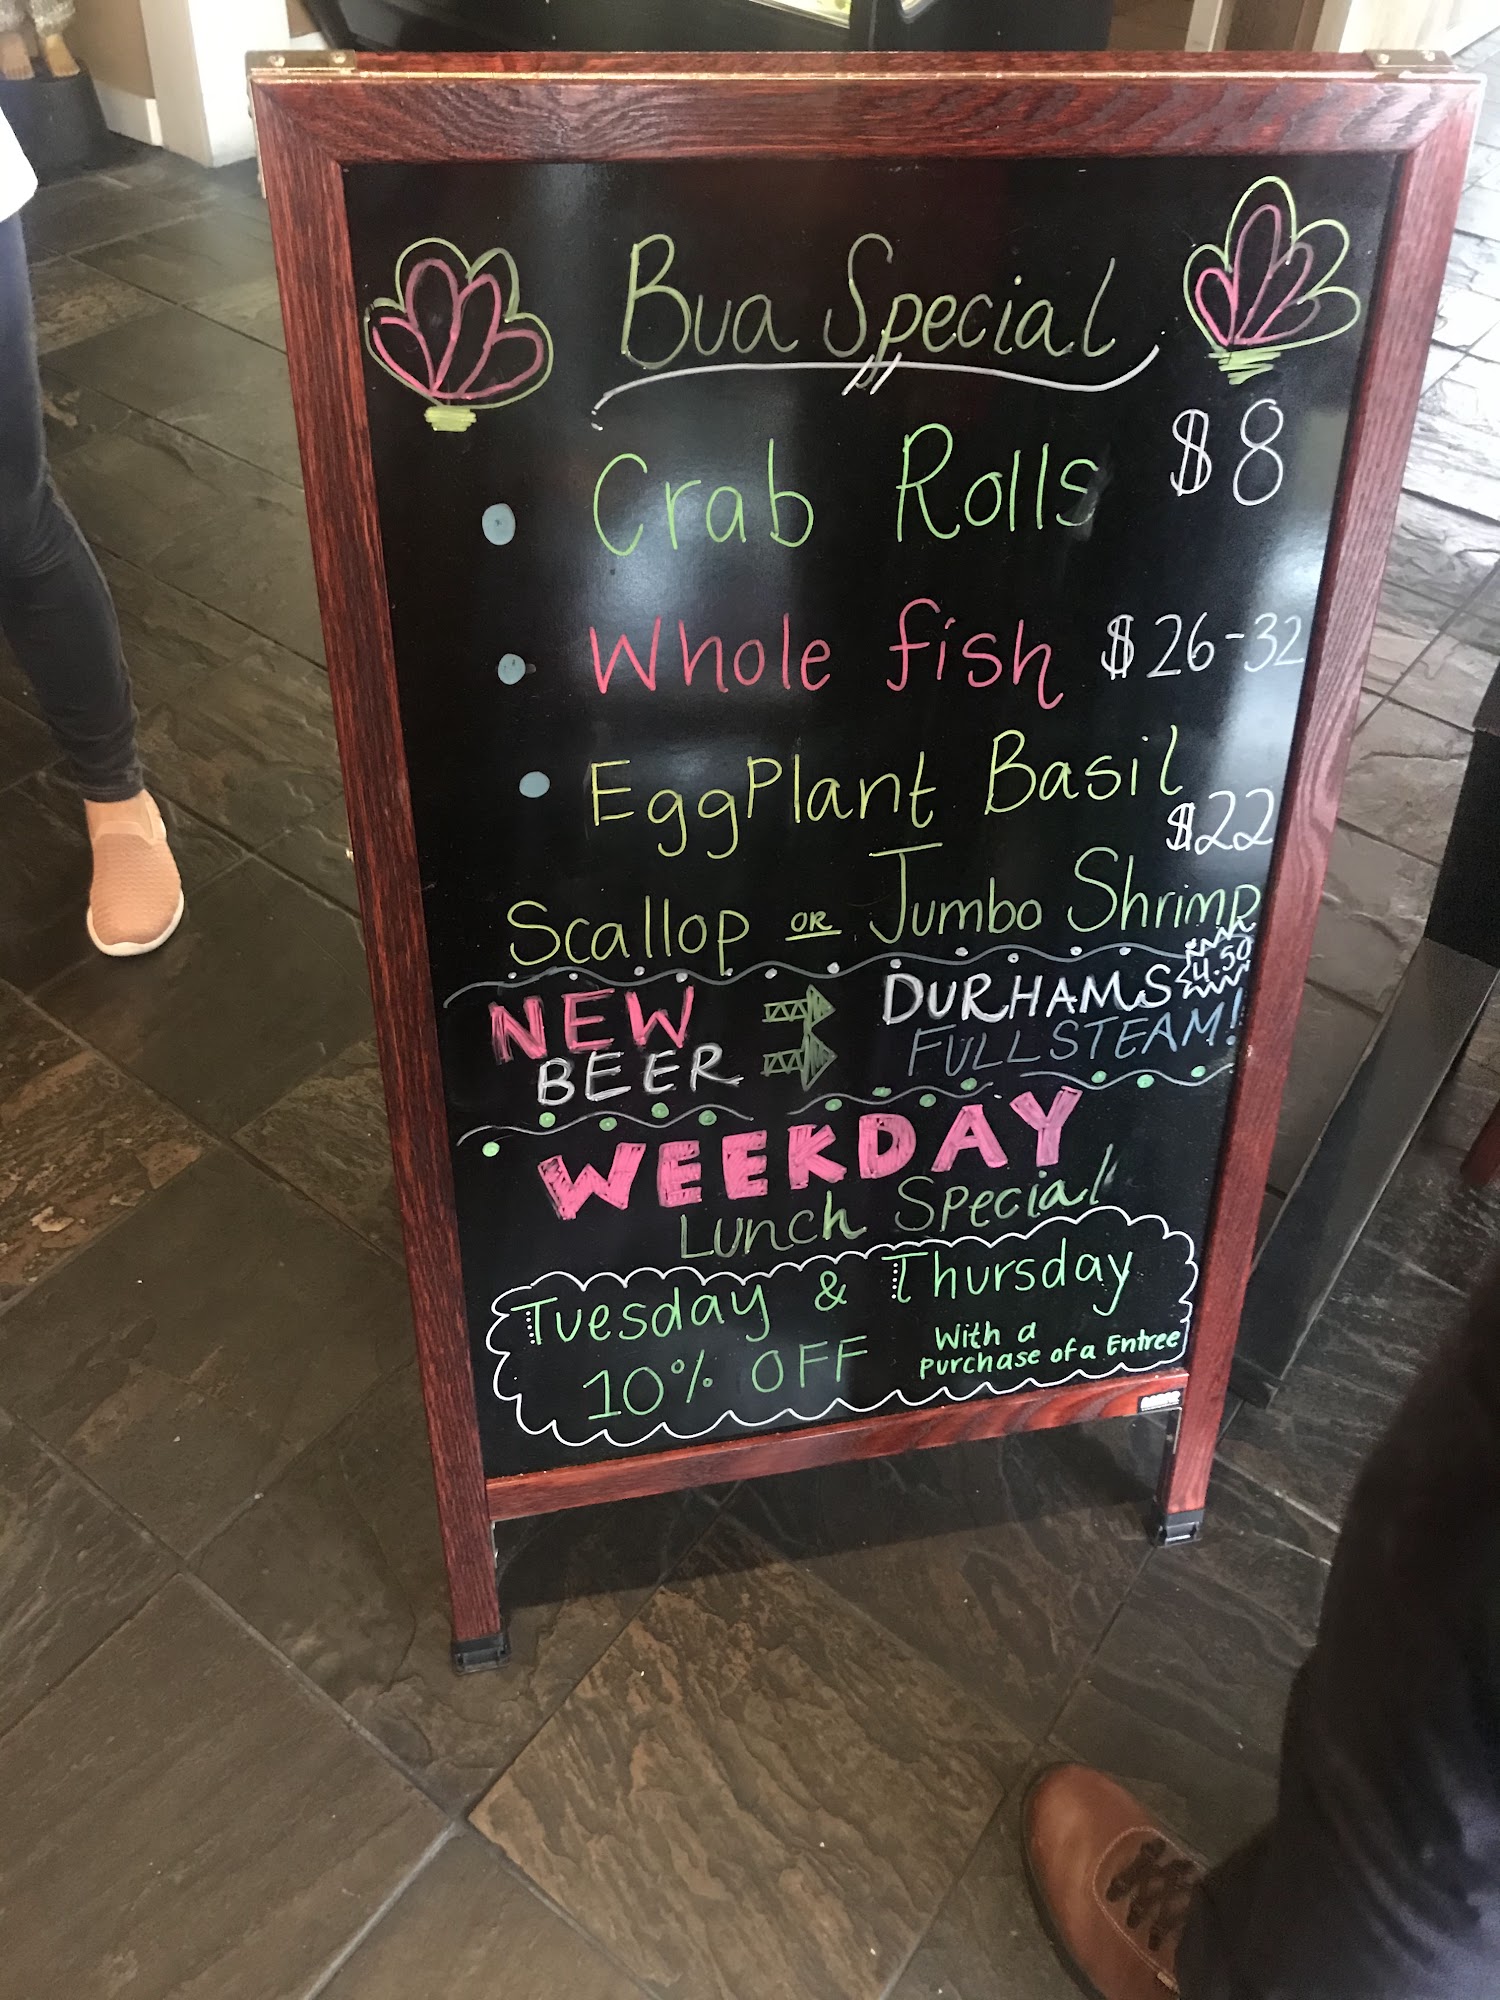 Bua Special
• Crab Rolls $8
• Whole fish $26-32
• EggPlant Basil
$22
Scallop OR Jumbo Shrimp
NEW BEER
DURHAMS 4.50
FULLSTEAM!
WEEKDAY
Lunch Special
Tuesday & Thursday
10% OFF
With a
purchase of a Entree